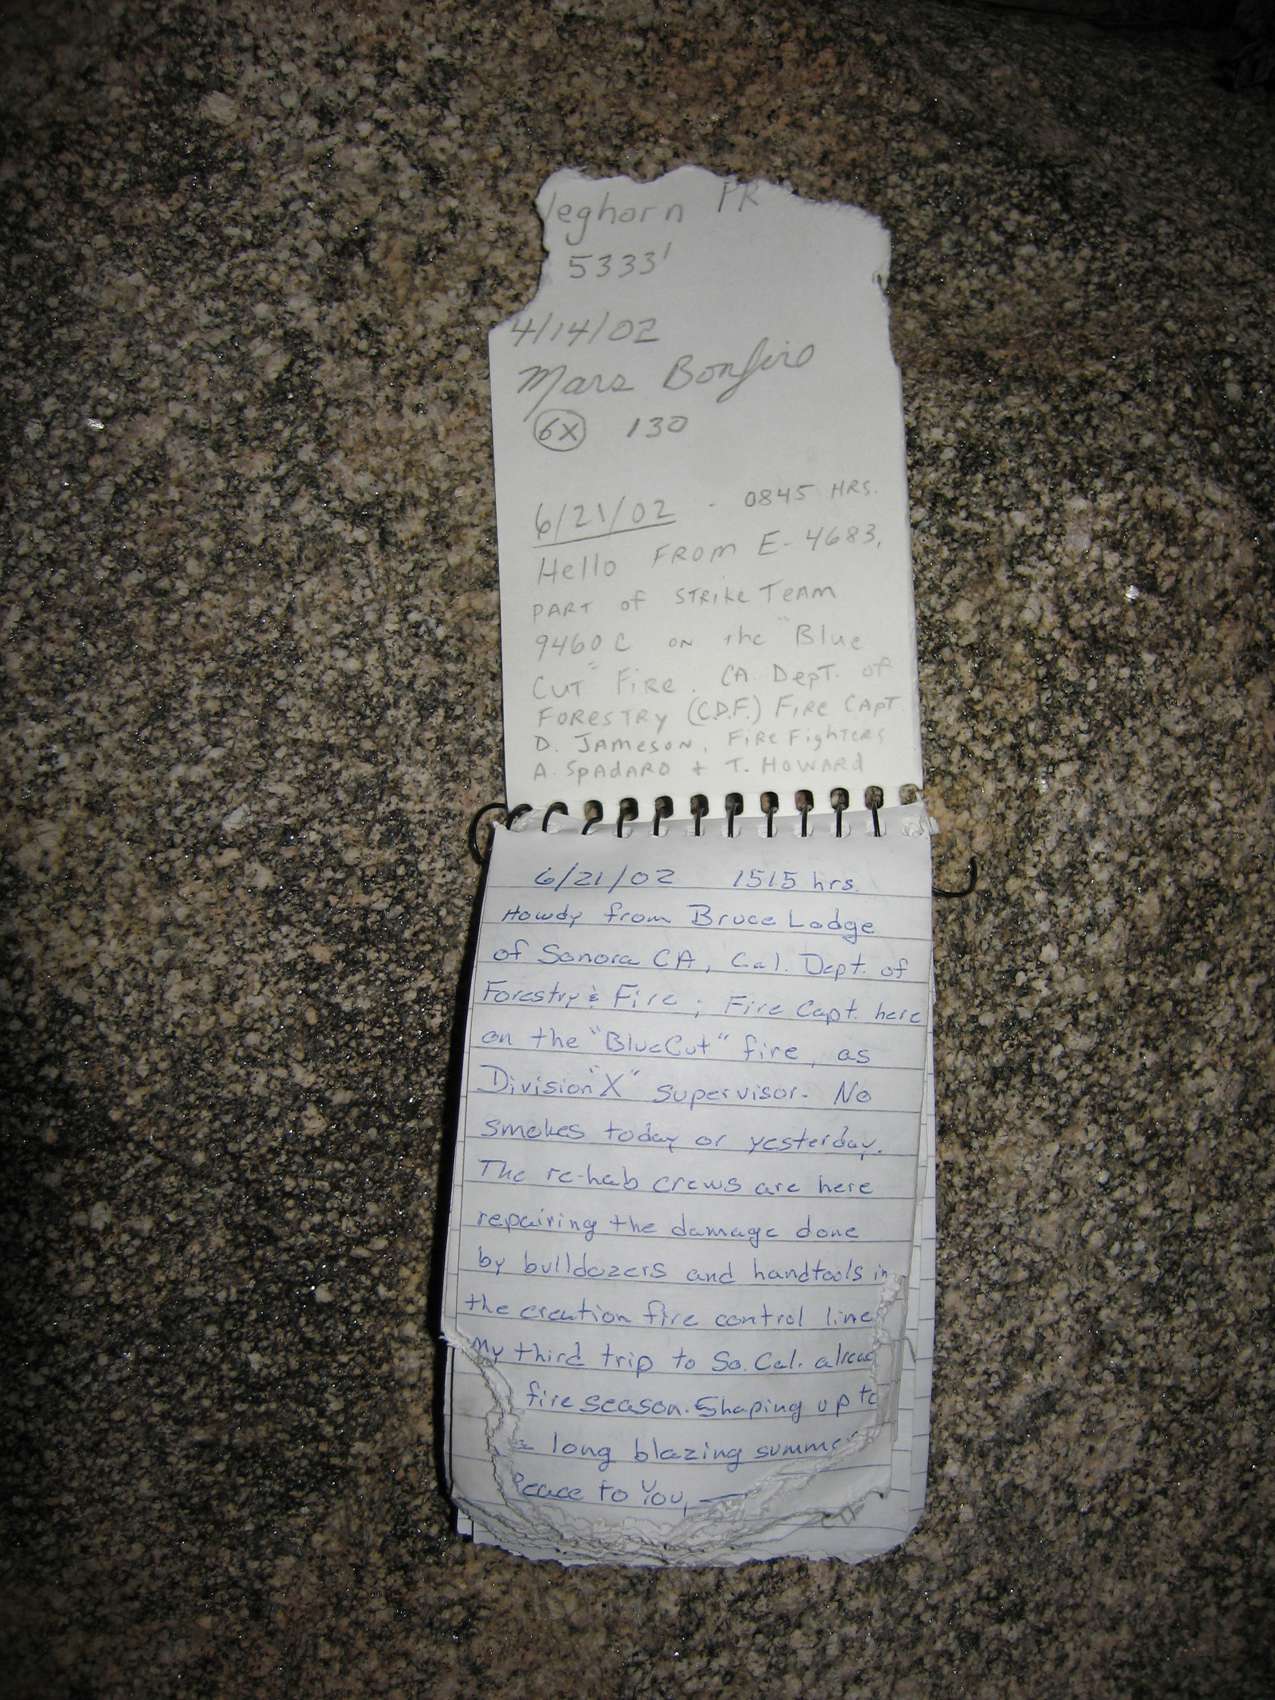 leghorn PK
5333'
4/14/02
Mars Bonfire
6X 130
6/21/02 - 0845 HRS.
Hello FROM E-4683,
PART of STRIKE TEAM
9460C ON the "Blue
CUT" FIRE. CA. DepT. of
FORESTRY (C.D.F.) FIRE CAPT
D. JAMESON, FIRE FIGHTERS
A. SPADARO + T. HOWARD
6/21/02 1515 hrs.
Howdy from Bruce Lodge
of Sonora CA, Cal. Dept. of
Forestry & Fire; Fire Capt. here
on the "BlueCut" fire, as
Division "X" supervisor. No
smokes today or yesterday.
The re-hab crews are here
repairing the damage done
by bulldozers and handtools in
the creation fire control line
My third trip to So. Cal. alread
fire season. Shaping up to
a long blazing summer
Peace to You,